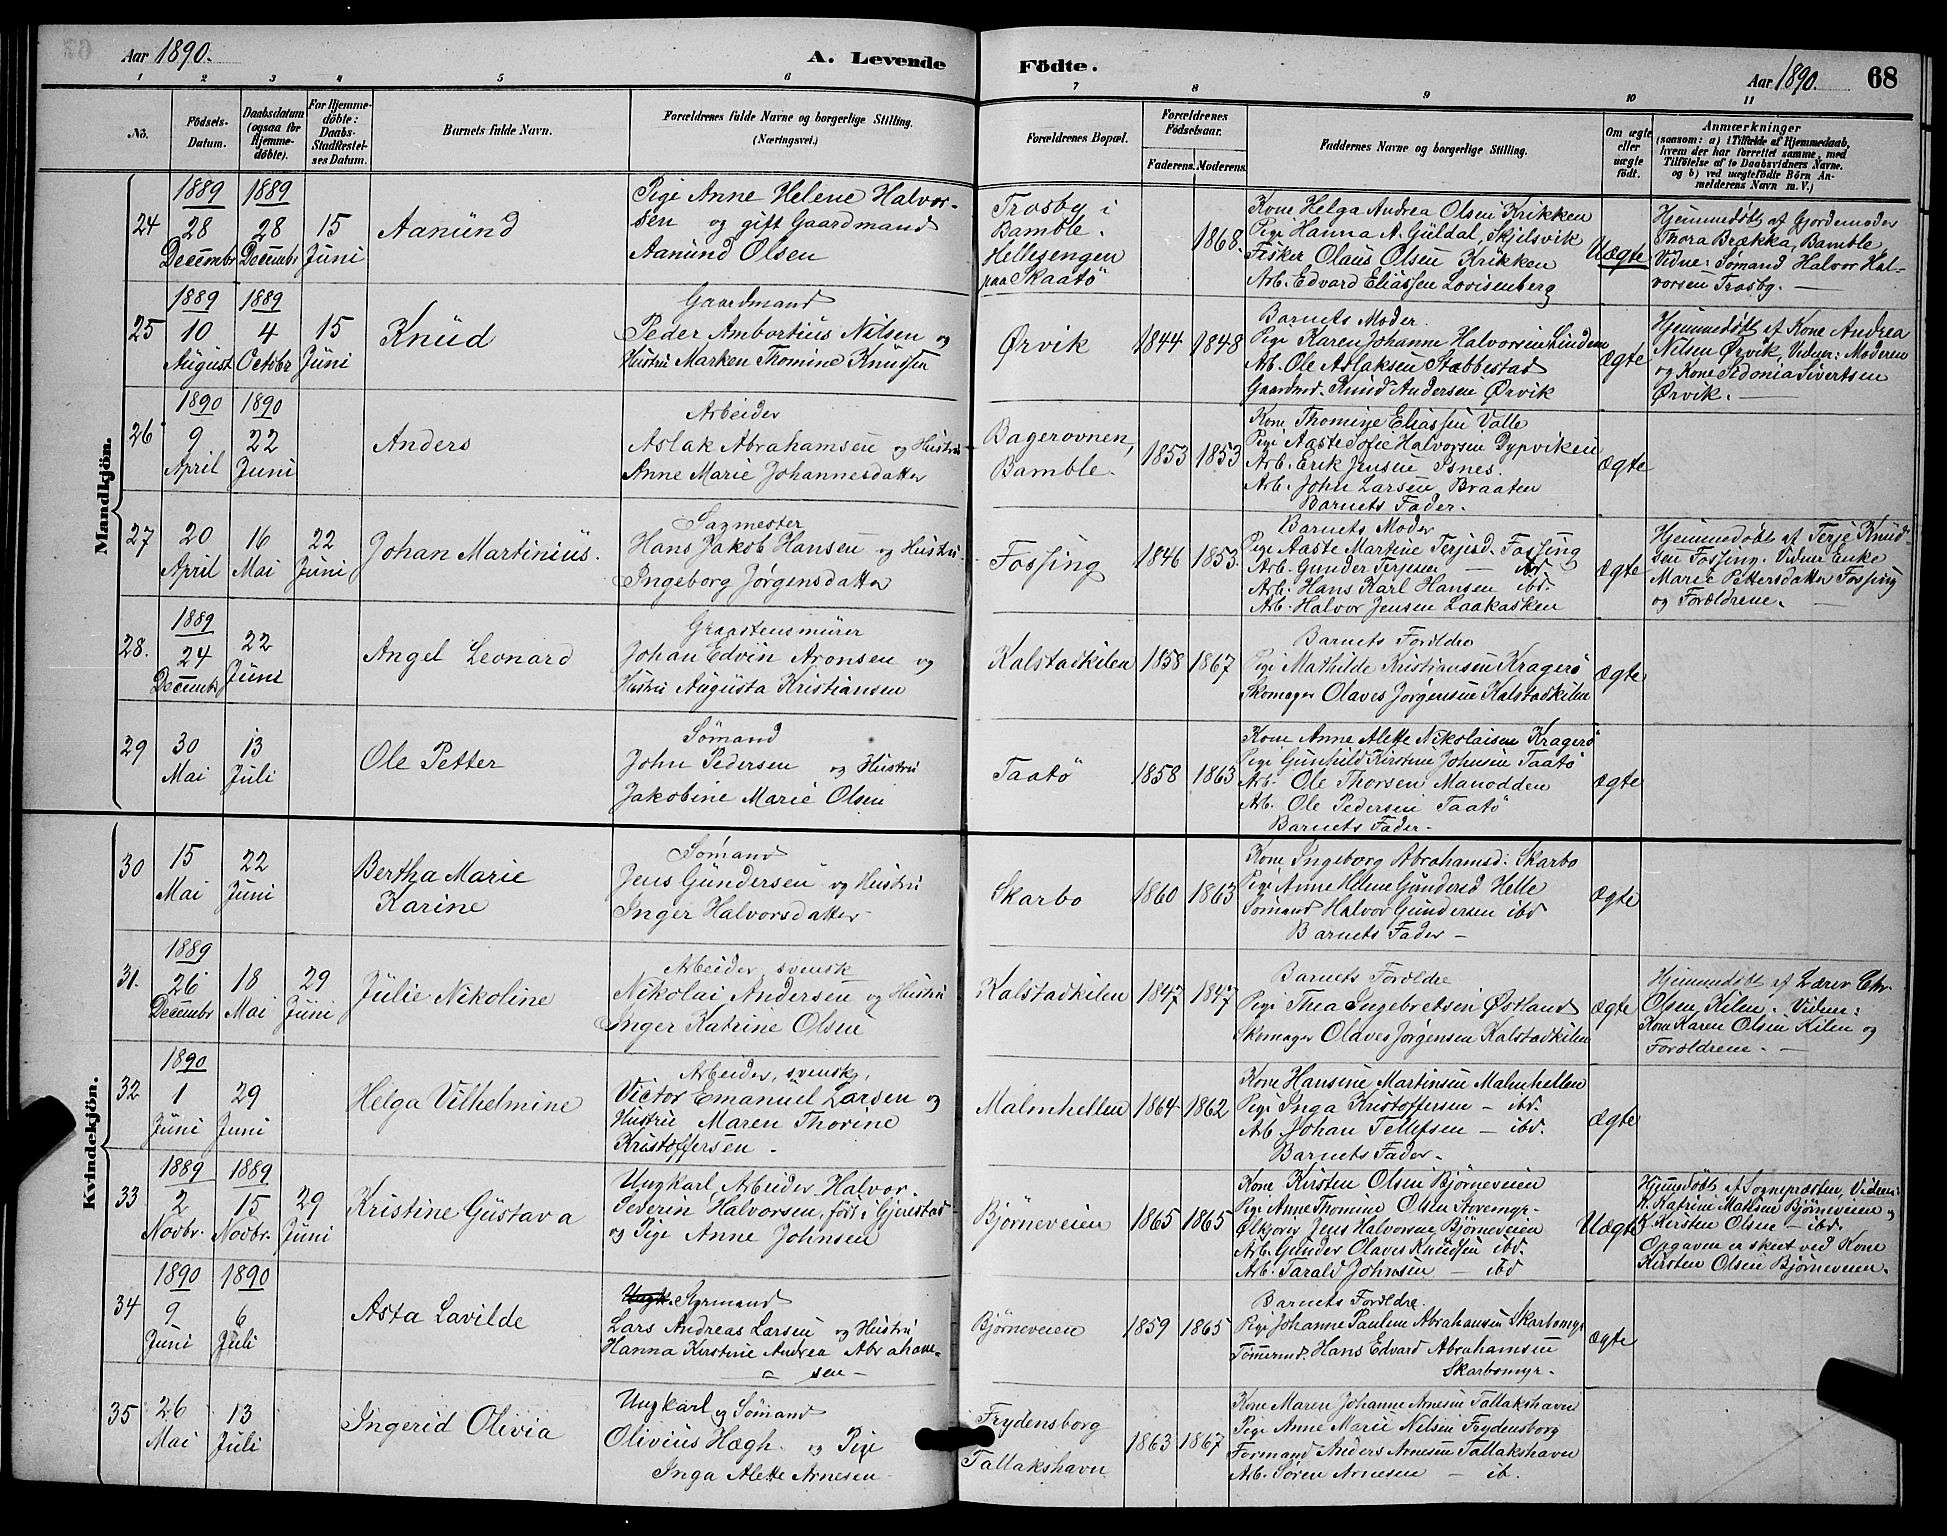 Aar 1890.
A. Levende
Födte.
Aar 1890.
68
1 2 3 4 5 6 7 8 9 10 11
No.
Födsels-Datum.
Daabsdatum (ogsaa for Hjemme-döbte).
For Hjemme-döbte: Daabs-Stadfæstel-ses Datum.
Barnets fulde Navn.
Forældrenes fulde Navne og borgerlige Stilling.
(Næringsvei.)
Forældrenes Bopæl.
Forældrenes Födselsaar.
Faderens. Moderens.
Faddernes Navne og borgerlige Stilling.
Om ægte eller uægte födt.
Anmærkninger
(saasom: a) i Tilfælde af Hjemmedaab, hvem der har forrettet samme, med Tilföielse af to Daabsvidners Navne. og b) ved uægtefödte Börn An-melderens Navn m. V.)
Mandkjön.
24
1889 28 Decembr
1889 28 Decembr
15 Juni
Aanund
Pige Anne Helene Halvor-
sen og gift Gaardmand
Aanund Olsen
Trosby i
Bamble.
Hellesengen
paa Skaatö
1868.
Kone Helga Andrea Olsen Krikken
Pige Hanna A. Guldal, Skjelsvik
Fisker Olaus Olsen Krikken
Arb. Edvard Eliassen Lovisenberg
Uægte
Hjemmedöbt af Gjordemoder
Thora Brækka, Bamble
Vidne: Sömand Halvor Hal-
vorsen Trosby. —
25
1889 10 August
1889 4 Octobr
15 Juni
Knud
Gaardmand
Peder Ambortius Nilsen og
Hustru Marken Thomine Knudsen
Ørvik
1844 1848
Barnets Moder.
Pige Karen Johanne Halvorsen Linden
Arb. Ole Aslaksen Stabbestad
Gaardmd. Knud Andersen Ørvik
ægte
Hjemmedöbt af Kone Andrea
Nilsen Ørvik, Vidner: Moderen
og Kone Sidonia Sivertsen
Ørvik. —
26
1890 9 April
1890 22 Juni
Anders
Arbeider
Aslak Abrahamsen og Hustru
Anne Marie Johannesdatter
Bagerovnen,
Bamble.
1853 1853
Kone Thomine Eliassen Valle
Pige Aaste Sofie Halvorsen Dypviken
Arb. Erik Jensen Isnes.
Arb. John Larsen Braaten
Barnets Fader.
ægte
27
20 April
16 Mai
22 Juni
Johan Martinius.
Sagmester
Hans Jakob Hansen og Hustru
Ingeborg Jörgensdatter
Fossing
1846 1853.
Barnets Moder
Pige Aaste Martine Terjesd. Fossing
Arb. Gunder Terjesen — ibd
Arb. Hans Karl Hansen ibd.
Arb. Halvor Jensen Laakasken
ægte
Hjemmedöbt af Terje Knud-
sen Fossing. Vidne Enke
Marie Pettersdatter Fossing
og Forældrene. —
28.
1889 24 Decembr
22 Juni
Angel Leonard
Graastensmurer
Johan Edvin Aronsen og
Hustru Augusta Kristiansen
Kalstadkilen
1858 1867
Barnets Forældre
Pige Mathilde Kristiansen Kragerö
Skomager Olaves Jörgensen Kalstadkilen
ægte
29
30 Mai
13 Juli
Ole Petter
Sömand
John Pedersen og Hustru
Jakobine Marie Olsen
Taatö
1858 1863
Kone Anne Alette Nikolaisen Kragerö
Pige Gunhild Kirstine Johnsen Taatö
Arb. Ole Thorsen Manodden
Arb. Ole Pedersen Taatö
Barnets Fader.
ægte
Kvindekjön.
30
15 Mai
22 Juni
Bertha Marie
Karine
Sömand
Jens Gundersen og Hustru
Inger Halvorsdatter
Skarbo
1860 1863
Kone Ingeborg Abrahamsd. Skarbo
Pige Anne Helene Gundersd Helle
Sömand Halvor Gundersen ibd
Barnets Fader —
ægte
31.
1889 26 Decembr
18 Mai
29 Juni
Julie Nikoline
Arbeider, svensk
Nikolai Andersen og Hustru
Inger Katrine Olsen
Kalstadkilen
1847 1847
Barnets Forældre
Pige Thea Ingebretsen Østland
Skomager Olaves Jörgensen Kalstadkilen
ægte
Hjemmedöbt af Lærer Chr
Olsen Kilen. Vidner:
Kone Karen Olsen Kilen og
Forældrene. —
32
1890 1 Juni
29 Juni
Helga Vilhelmine
Arbeider, svensk,
Victor Emanuel Larsen og
Hustru Maren Thorine
Kristoffersen.
Malmhellen
1864 1862
Kone Hansine Martinsen Malmhellen
Pige Inga Kristoffersen — ibd.
Arb Johan Tellefsen — ibd.
Barnets Fader.
ægte
33
1889 2 Novbr.
1889 15 Novbr.
29 Juni
Kristine Gustava
Ungkarl Arbeider Halvor
Severin Halvorsen, född i Gjerestad
og Pige Anne Johnsen
Björneveien
1865 1865
Kone Kirsten Olsen Björneveien
Pige Anne Thomine Olsen Stovemyr
Ølkjører Jens Halvorsen Björneveien
Arb. Gunder Olaves Knudsen ibd.
Arb. Tarald Johnsen — ibd
Uægte
Hjemmedöbt af Sognepræsten, Vidner:
K. Katrine Madsen Björneveien og
K. Kirsten Olsen — ibd.
Opgaven er skeet ved Kone
Kirsten Olsen Björneveien.
34
1890 9 Juni
1890 6 Juli
Asta Lavilde
Styrmand
Lars Andreas Larsen og Hustru
Hanna Kirstine Andrea Abraham-
sen —
Björneveien
1859 1865
Barnets Forældre.
Pige Johanne Pauline Abrahamsen Skarbomyr
Tömermd. Hans Edvard Abrahamsen
Skarbomyr.
ægte
35
26 Mai
13 Juli
Ingerid Olivia
Ungkarl og Sömand
Olivius Hægh. og Pige
Inga Alette Arnesen
Frydensborg
Tallakshavn
1863 1867
Kone Maren Johanne Arnesen Tallakshavn
Pige Anne Marie Nilsen Frydensborg
Formand Anders Arnesen Tallakshavn
Arb. Sören Arnesen — ib.